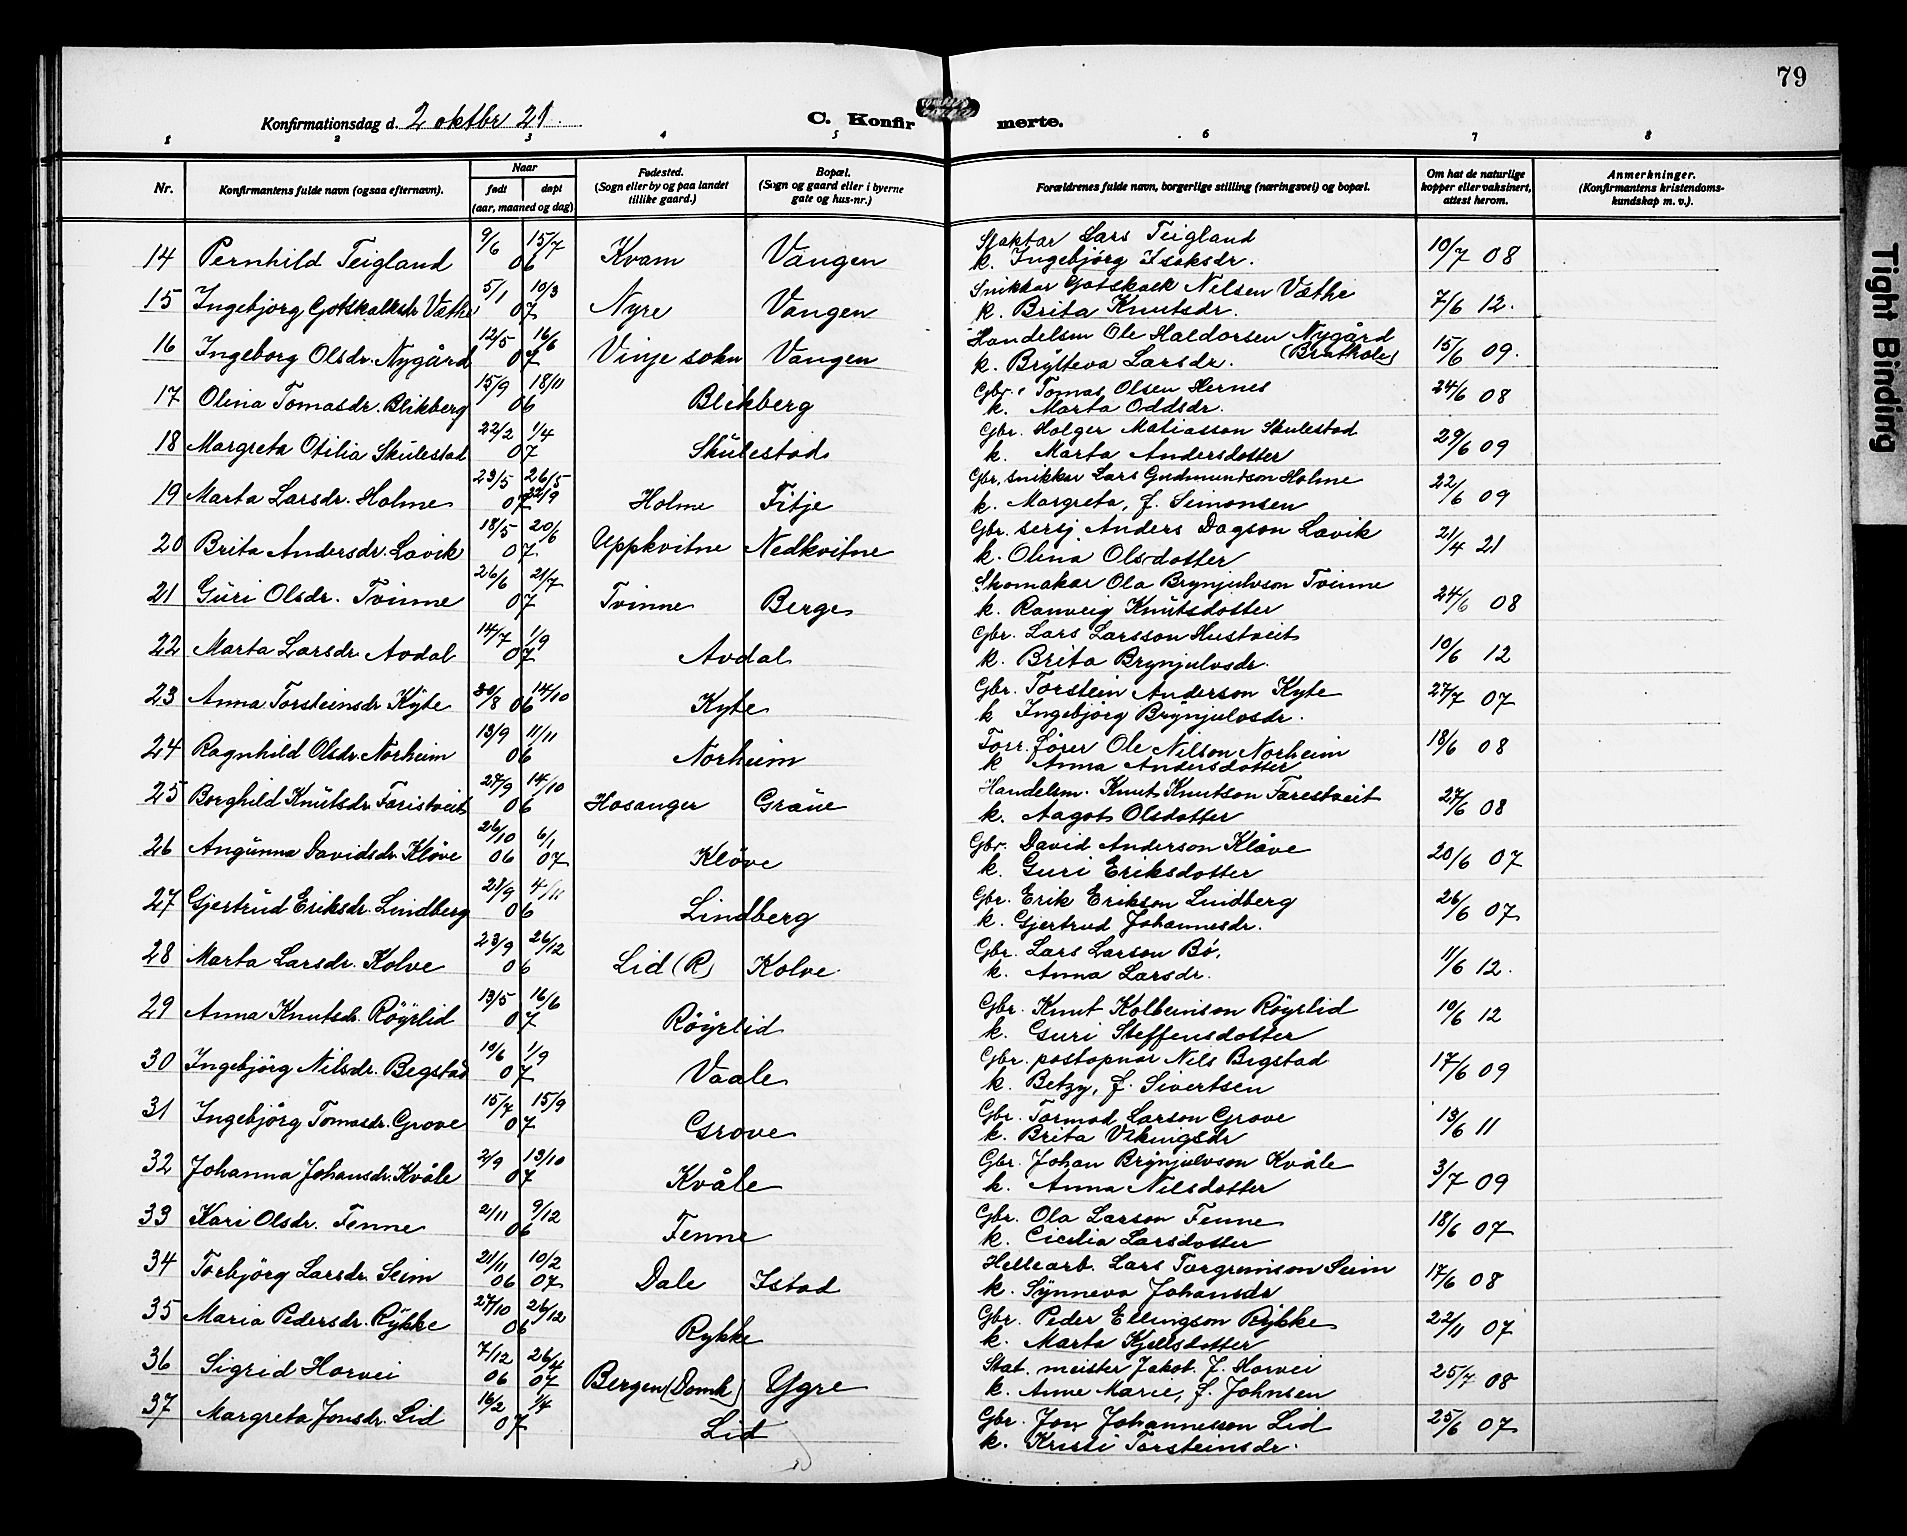 79
Konfirmationsdag d. 2 oktbr 21.
C. Konfirmerte.
1 2 3 4 5 6 7 8
Nr. Konfirmantens fulde navn (ogsaa efternavn). Naar født døpt (aar, maaned og dag) Fødested. (Sogn eller by og paa landet tillike gaard.) Bopæl. (Sogn og gaard eller i byerne gate og hus-nr.) Forældrenes fulde navn, borgerlige stilling (næringsvei) og bopæl. Om hat de naturlige kopper eller vaksinert, attest herom. Anmerkninger. (Konfirmantens kristendoms-kundskap m. v.).
14 Pernhild Teigland 9/6 15/7 06 Kvam Vangen Slaktar Lars Teigland 10/7 08
k. Ingebjørg Isaksdr.
15 Ingebjørg Gotskalksdr Væthe 5/1 10/3 07 Nyre Vangen Snikkar Gotskalk Nilsen Væthe 7/6 12.
k. Brita Knutsdr.
16 Ingeborg Olsdr. Nygård 12/5 16/6 07 Vinje sokn Vangen Handelsm Ole Haldorsen Nygård 15/6 09.
k. Brytteva Larsdr. (Brathole)
17 Olina Tomasdr. Blikberg 15/9 18/11 06 Blikberg Gbr. Tomas Olsen Hernes 24/6 08
k. Marta Oddsdr.
18 Margreta Otilia Skulestad 22/2 1/4 07 Skulestad Gbr. Holger Matiasson Skulestad 29/6 09
k. Marta Andersdotter
19 Marta Larsdr. Holme 23/5 26/5 22/9 07 Holme Fitje Gbr, snikkar Lars Gudmundson Holme 22/6 09
k. Margreta, f. Simonsen
20 Brita Andersdr. Lavik 18/5 20/6 07. Uppkvitne Nedkvitne Gbr. sersj. Anders Dagson Lavik 21/4 21
k. Olina Olsdotter
21 Guri Olsdr. Tvinne 26/6 21/7 07 Tvinne Berge Skomakar Ola Brynjulvson Tvinne 24/6 08
k. Ranveig Knutsdotter
22 Marta Larsdr. Avdal 14/7 1/9 07 Avdal Gbr. Lars Larsson Hustveit 10/6 12
k. Brita Brynjulvsdr.
23 Anna Torsteinsdr Kyte 30/8 14/10 06 Kyte Gbr. Torstein Anderson Kyte 27/7 07
k Ingebjörg Brynjulvsdr.
24 Ragnhild Olsdr. Norheim 13/9 11/11 06 Norheim Forr. fører Ole Nilson Norheim 18/6 08
k Anna Andersdotter
25 Borghild Knutsdr Faristveit 27/9 14/10 06 Hosanger Graue Handelsm. Knut Knutson Farestveit 27/6 08
k. Aagot Olsdotter
26 Angunna Davidsdr Kløve 26/10 06 6/1 07 Kløve Gbr. David Anderson Kløve 20/6 07
k. Guri Eriksdotter
27 Gjertrud Eriksdr. Lindberg 21/9 4/11 06 Lindberg Gbr. Erik Erikson Lindberg 26/6 07
k. Gjertrud Johannesdr.
28 Marta Larsdr. Kolve 23/9 26/12 06 Lid (R) Kolve Gbr. Lars Larson Bø. 11/6 12.
k. Anna Larsdr.
29 Anna Knutsdr. Röyrlid 13/5 16/6 07 Röyrlid Gbr. Knut Kolbeinson Röyrlid 10/6 12
k. Guri Steffensdotter
30 Ingebjörg Nilsdr. Begstad 10/6 1/9 07 Vaale Gbr. postopnar Nils Begstad 17/6 09
k. Betzy, f. Sivertsen
31 Ingebjörg Tomasdr. Grove 15/7 15/9 07 Grove Gbr. Tormod Larson Grove 13/6 11
k. Brita Vikingsdr
32 Johanna Johansdr. Kvåle 2/9 13/10 07 Kvåle Gbr. Johan Brynjulvson Kvåle 3/7 09
k. Anna Nilsdotter
33 Kari Olsdr. Fenne 2/11 9/12 06 Fenne Gbr. Ola Larson Fenne 18/6 07
k. Cicilia Larsdotter
34 Torbjörg Larsdr. Seim 21/11 06 10/2 07 Dale Istad Hellearb. Lars Torgrimson Seim 17/6 08
k. Synneva Johansdr
35 Maria Pedersdr. Rykke 27/10 26/12 06 Rykke Gbr. Peder Ellingson Rykke 22/11 07
k. Marta Kjellsdotter
36 Sigrid Horvei 7/12 06 26/4 07 Bergen (Domk) Ygre Stat. meister Jakob. J. Horvei 25/7 08
k. Anne Marie, f. Johnsen
37 Margreta Jonsdr. Lid 10/2 1/4 07 Lid Gbr. Jon Johannesson Lid 25/6 07
k. Kristi Torsteinsdr.
Tight Binding